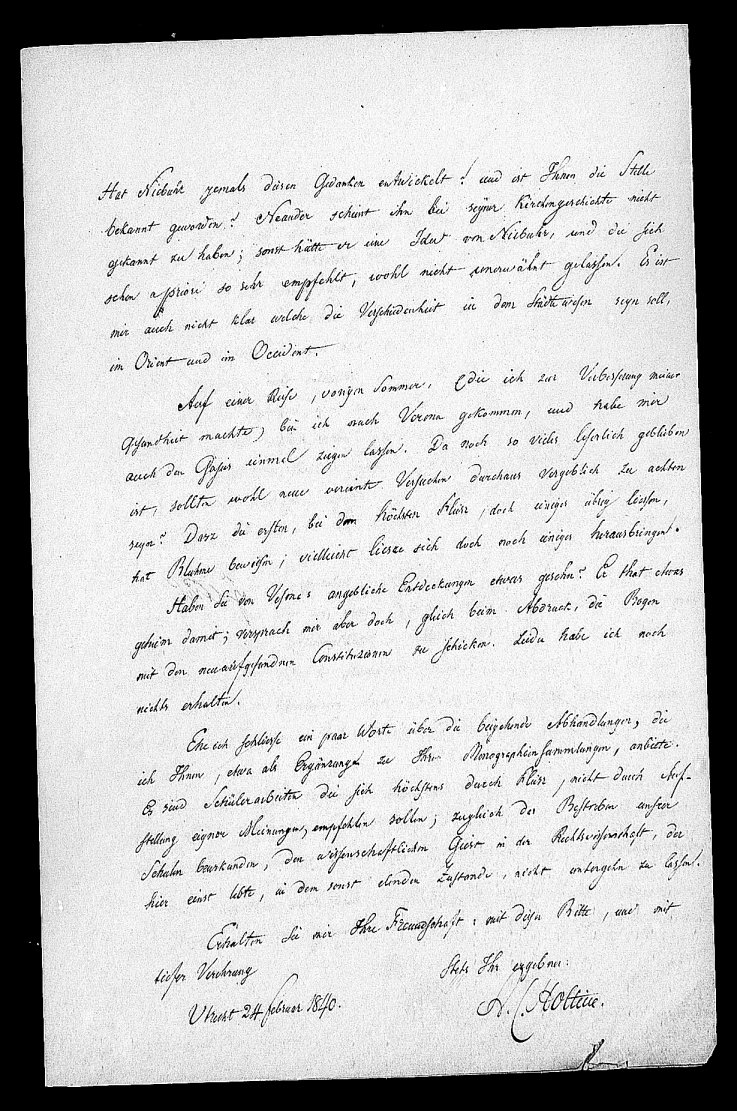 Hat Niebuhr jemals diesen Gedanken entwickelt? und ist Ihnen die Stelle
bekannt geworden? Neander scheint ihn bei seyner Kirchengeschichte nicht
gekannt zu haben; sonst hätte er eine Idee von Niebuhr, und die sich
schon a priori so sehr empfehlt, wohl nicht unerwähnt gelassen. Es ist
mir auch nicht klar welche die Verschiedenheit in dem Städtewesen seyn soll,
im Orient und im Occident.
Auf einer Reise, vorigen Sommer, (die ich zur Verbesserung meiner
Gesundheit machte) bin ich nach Verona gekommen, und habe mir
auch den Gajus einmal zeigen lassen. Da noch so vieles leserlich geblieben
ist, sollten wohl neue vereinte Versuchen durchaus vergeblich zu achten
seyn? Dasz die ersten, bei dem höchsten Fleisz, doch einiges übrig liessen,
hat Bluhme bewiesen; vielleicht liesze sich doch noch einiges herausbringen.
Haben Sie von Vesme's angebliche Entdeckungen etwas gesehn? Er that etwas
geheim damit; versprach mir aber doch, gleich beim Abdruck, die Bogen
mit den neuaufgefundnen Constitutionen zu schicken. Leider habe ich noch
nichts erhalten.
Ehe ich schliesse ein paar Worte über die beigehende Abhandlungen, die
ich Ihnen, etwa als Ergänzung zu Ihren Monographiensammlungen, anbiete.
Es sind Schülerarbeiten die sich höchstens durch Fleisz, nicht durch Auf-
stellung eigner Meinungen, empfehlen sollen; zugleich das Bestreben unsrer
Schulen beurkunden, den wissenschaftlichen Geist in der Rechtswissenschaft, der
hier einst lebte, in dem sonst elenden Zustande, nicht untergehn zu lassen.
Erhalten Sie mir Ihre Freundschaft: mit dieser Bitte, und mit
tiefer Verehrung
Stets Ihr ergebner
Utrecht 24 Februar 1840.
A. C. Holtius.